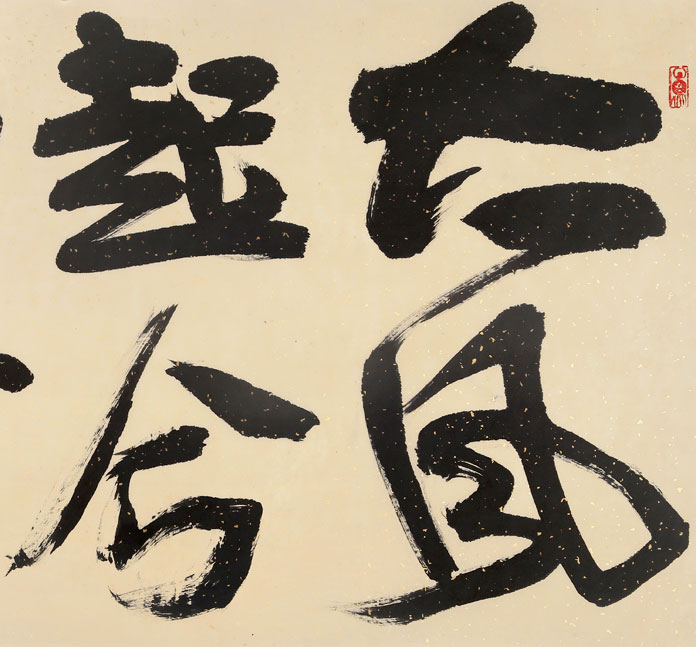 大風
起兮